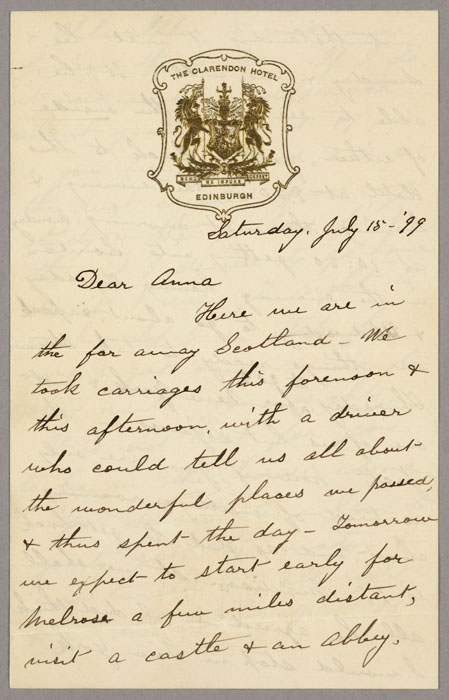 THE CLARENDON HOTEL
EDINBURGH
Saturday, July 15-'99
Dear Anna
Here we are in
the far away Scotland - We
took carriages this forenoon &
this afternoon, with a driver
who could tell us all about
the wonderful places we passed,
& thus spent the day - Tomorrow
we expect to start early for
Melrose a few miles distant,
visit a castle & an Abbey.